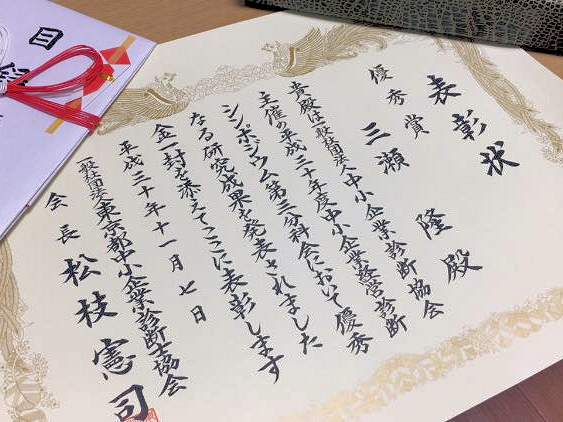 表彰状
優秀賞
三瀬 隆 殿
貴殿は一般社団法人中小企業診断協会
主催の平成三十年度中小企業経営診断
シンポジウム第三分科会において優秀
なる研究成果を発表されました
金一封を添えてここに表彰します
平成三十年十一月七日
一般社団法人東京都中小企業診断士協会
会長 松枝憲司
目